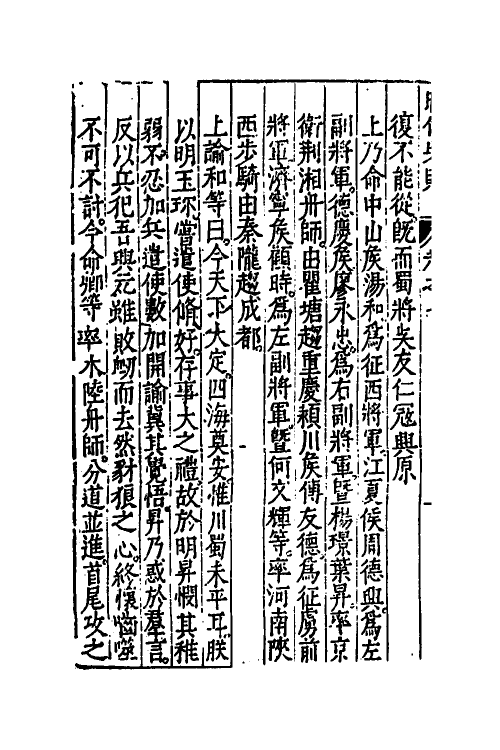 復不能從既而蜀將吳友仁寇興原
上乃命中山侯湯和為征西將軍江夏侯周德興為左
副將軍德慶侯廖永忠為右副將軍暨楊璟葉昇率京
衛荆湘舟師由瞿塘趨重慶頴川侯傅友德為征虜前
將軍濟寧侯顧時為左副將軍暨何文輝等率河南陝
西步騎由秦隴趨成都
上諭和等曰今天下大定四海莫安惟川蜀未平耳朕
以明玉珍嘗遣使脩好存事大之禮故於明昇憫其稚
弱不忍加兵遣使數加開諭冀其覺悟昇乃惑於羣言
反以兵犯吾興元雖敗衂而去然豺狼之心終懷嚙噬
不可不討今命卿等率水陸舟師分道並進首尾攻之